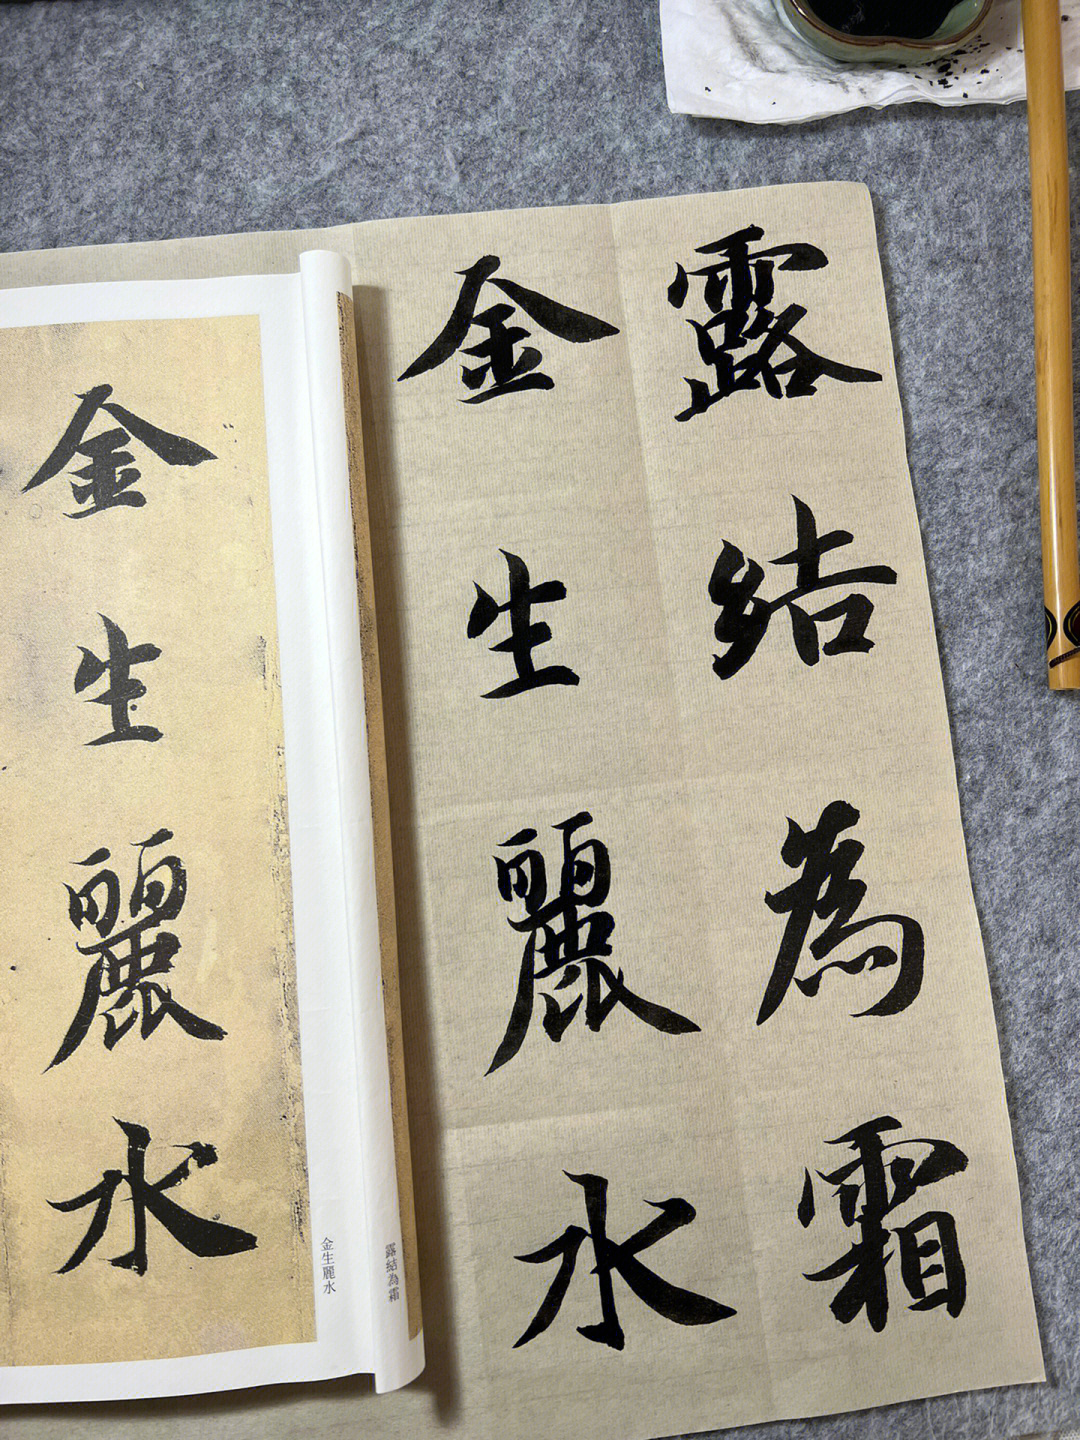 露結為霜
金生麗水
露結為霜
金生麗水
金生麗水